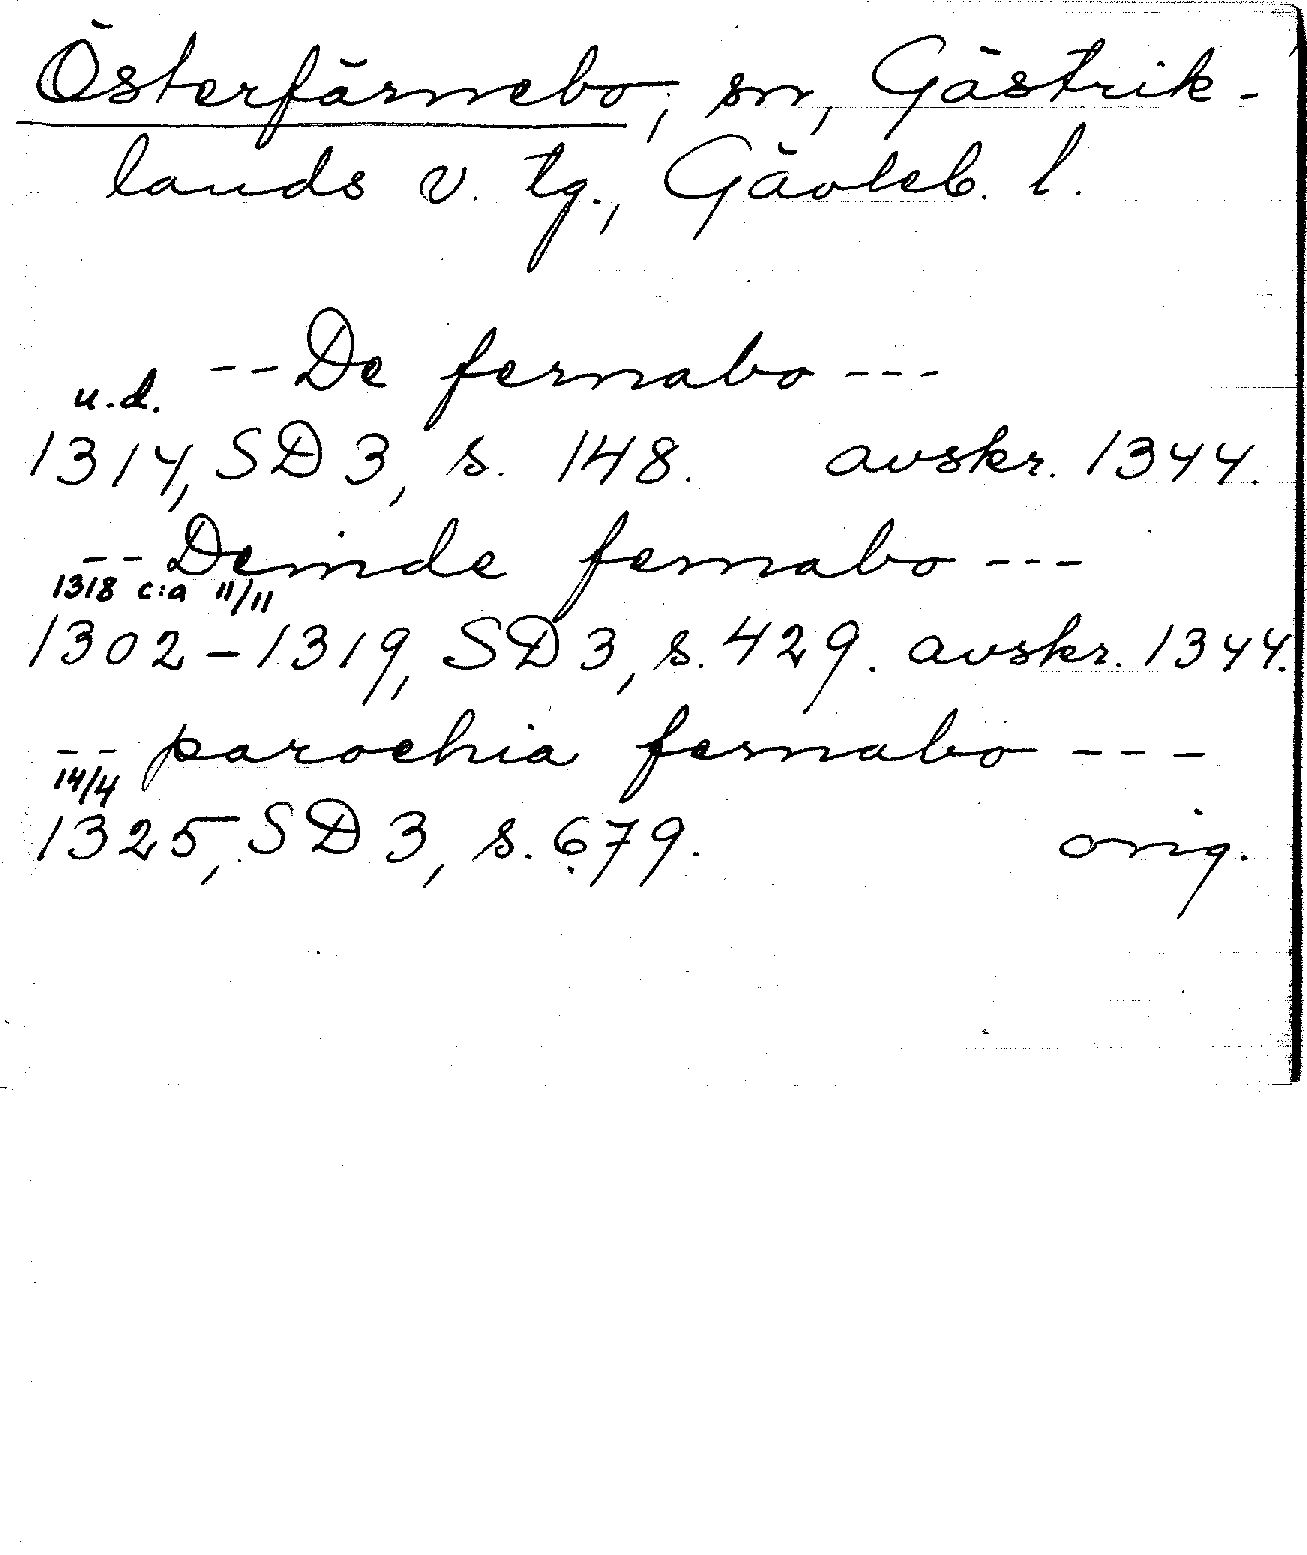 Österfärnebo, sn, Gästrik-
lands v. tg., Gävleb. l.
-- De fernabo ---
u.d.
1314, SD 3, s. 148. avskr. 1344.
-- Deinde fernabo ---
1318 c:a 11/11
1302-1319, SD 3, s. 429. avskr. 1344.
-- parochia fernabo ---
14/4
1325, SD 3, s. 679. orig.